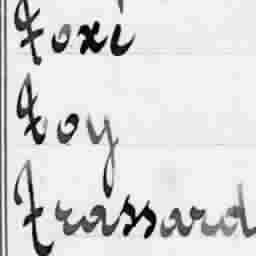 Foxi
Foy
Frassard